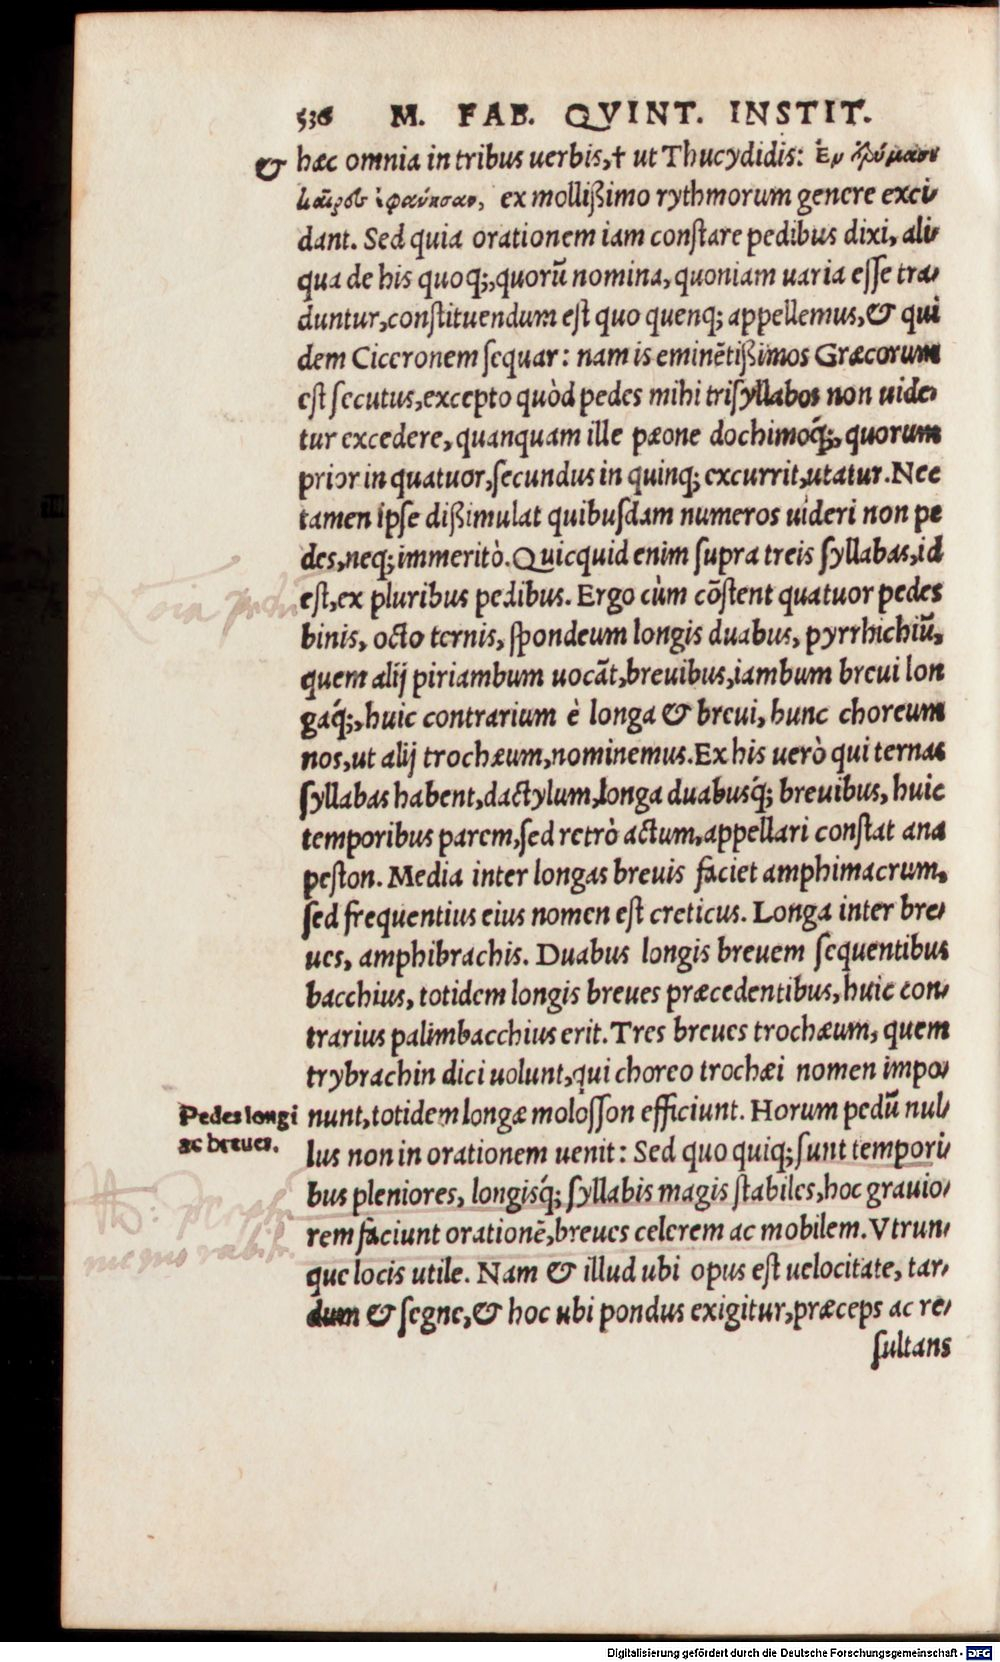 536 M. FAB. QVINT. INSTIT.
& hæc omnia in tribus uerbis,† ut Thucydidis:
ex mollißimo rythmorum genere exci-
dant. Sed quia orationem iam constare pedibus dixi, ali-
qua de his quoq;, quorū nomina, quoniam uaria esse tra-
duntur, constituendum est quo quenq; appellemus, & qui
dem Ciceronem sequar: nam is eminētißimos Græcorum
est secutus, excepto quòd pedes mihi trisyllabos non uide-
tur excedere, quanquam ille pæone dochimoq́;, quorum
prior in quatuor, secundus in quinq; excurrit, utatur. Nec
tamen ipse dißimulat quibusdam numeros uideri non pe
des, neq; immeritò. Quicquid enim supra treis syllabas, id
est, ex pluribus pedibus. Ergo cùm cōstent quatuor pedes
binis, octo ternis, spondeum longis duabus, pyrrhichiū,
quem alij piriambum uocāt, breuibus, iambum breui lon
gaq́;, huic contrarium è longa & breui, hunc choreum
nos, ut alij trochæum, nominemus. Ex his uerò qui ternas
syllabas habent, dactylum, longa duabusq́; breuibus, huic
temporibus parem, sed retrò actum, appellari constat ana
peston. Media inter longas breuis faciet amphimacrum,
sed frequentius eius nomen est creticus. Longa inter bre-
ues, amphibrachis. Duabus longis breuem sequentibus
bacchius, totidem longis breues præcedentibus, huic con-
trarius palimbacchius erit. Tres breues trochæum, quem
trybrachin dici uolunt, qui choreo trochæi nomen impo-
Pedes longi
ac breues.
nunt, totidem longæ molosson efficiunt. Horum pedū nul-
lus non in orationem uenit: Sed quo quiq; sunt tempori-
bus pleniores, longisq́; syllabis magis stabiles, hoc grauio-
rem faciunt orationē, breues celerem ac mobilem. Vtrun-
que locis utile. Nam & illud ubi opus est uelocitate, tar-
dum & segne, & hoc ubi pondus exigitur, præceps ac re-
sultans
Digitalisierung gefördert durch die Deutsche Forschungsgemeinschaft - DFG